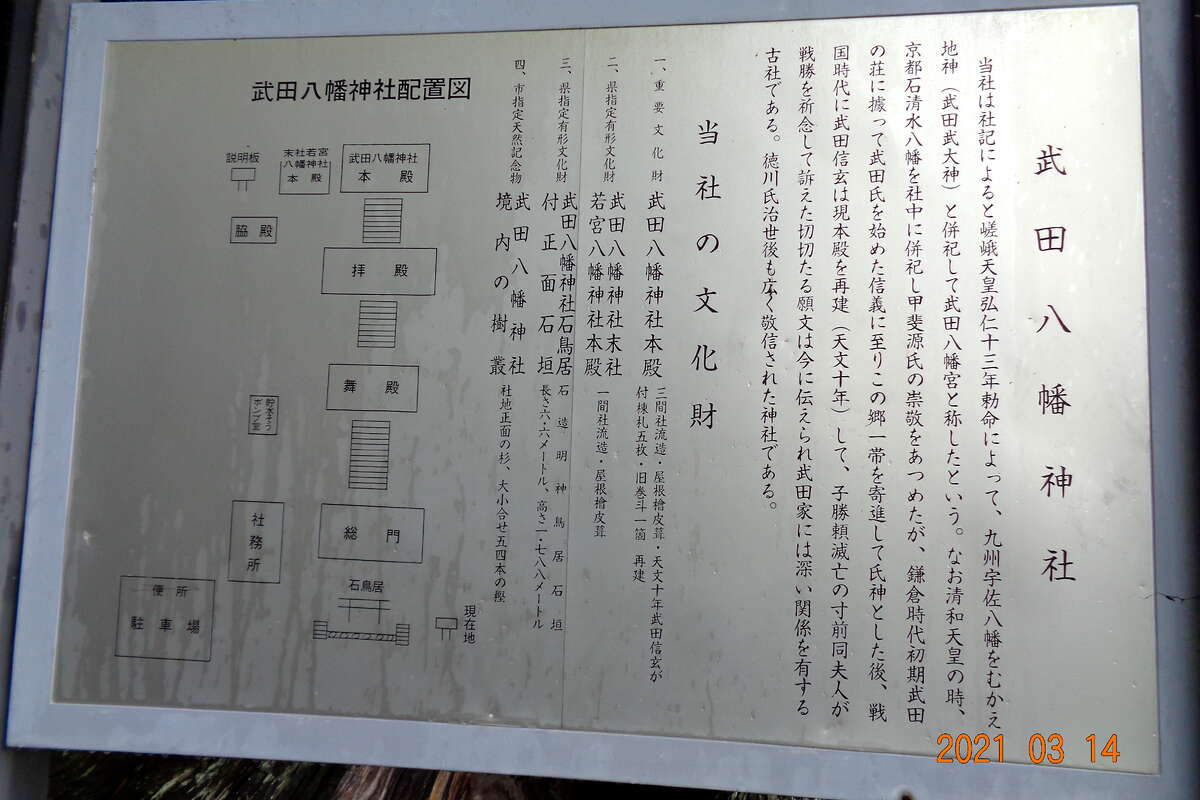 武田八幡神社
当社は社記によると嵯峨天皇弘仁十三年勅命によって、九州宇佐八幡をむかえ
地神（武田武大神）と併祀して武田八幡宮と称したという。なお清和天皇の時、
京都石清水八幡を社中に併祀し甲斐源氏の崇敬をあつめたが、鎌倉時代初期武田
の荘に據って武田氏を始めた信義に至りこの郷一帯を寄進して氏神とした後、戦
国時代に武田信玄は現本殿を再建（天文十年）して、子勝頼滅亡の寸前同夫人が
戦勝を祈念して訴えた切切たる願文は今に伝えられ武田家には深い関係を有する
古社である。徳川氏治世後も広く敬信された神社である。
当社の文化財
一、重要文化財 武田八幡神社本殿 三間社流造・屋根檜皮葺・天文十年武田信玄が
付棟札五枚・旧巻斗一箇 再建
二、県指定有形文化財 武田八幡神社末社
若宮八幡神社本殿 一間社流造・屋根檜皮葺
三、県指定有形文化財 武田八幡神社石鳥居 石造明神鳥居石垣
付正面石垣 長さ六・六メートル、高さ一・七八八メートル
四、市指定天然記念物 武田八幡神社
境内の樹叢 社地正面の杉、大小合せ五四本の樫
武田八幡神社配置図
武田八幡神社
本殿
末社若宮
八幡神社
本殿
説明板
脇殿
拝殿
舞殿
貯水そう
ポンプ室
総門
社務所
石鳥居
現在地
便所
駐車場
2021 03 14